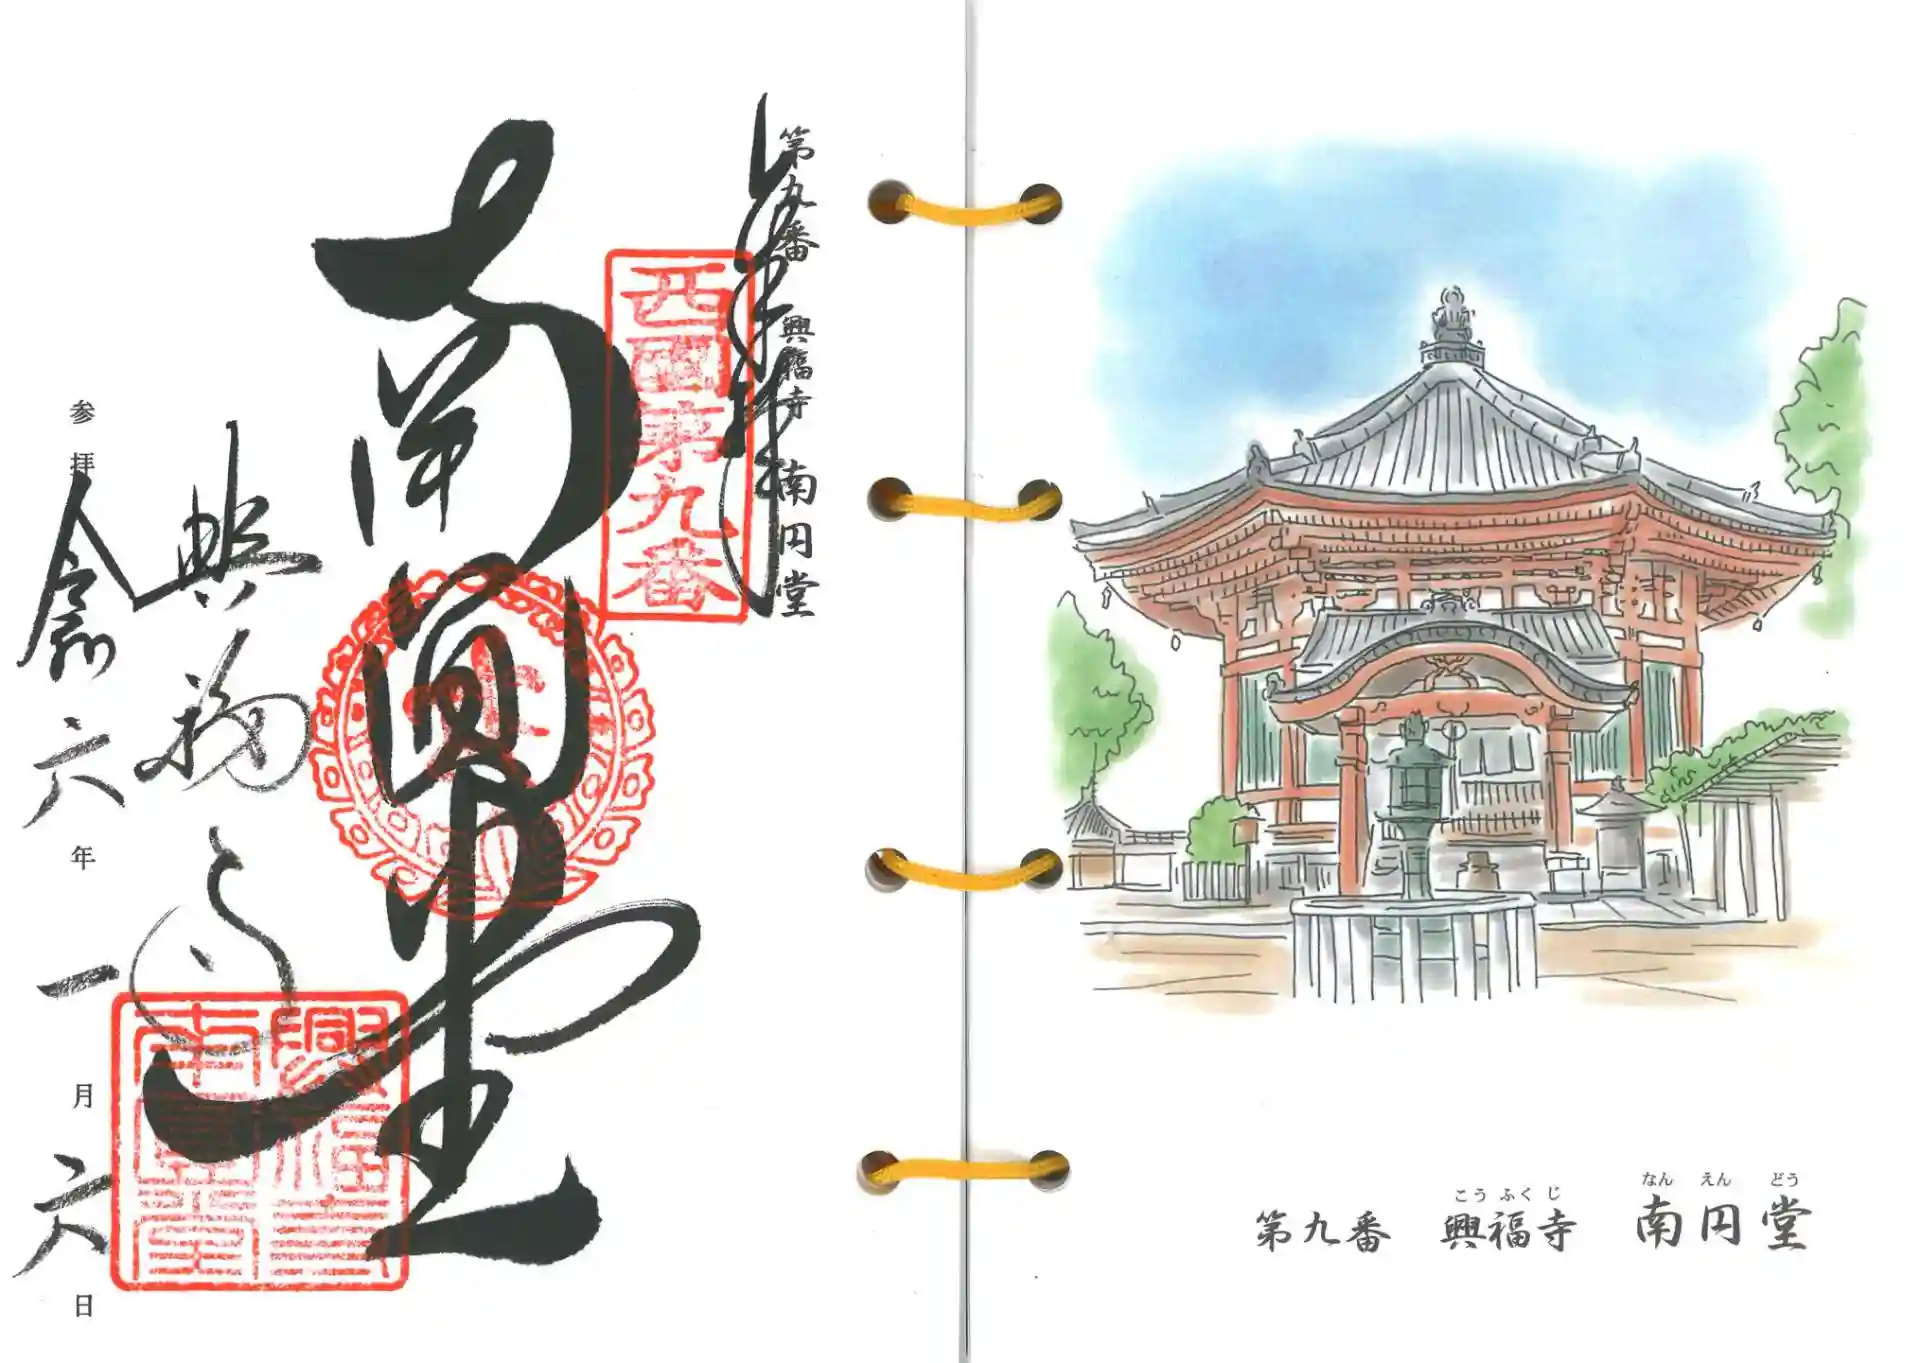 第九番 興福寺 南円堂
奉拝
西國第九番
南圓堂
興福寺
興福寺
南圓堂
参拝 令和六年一月六日
なん えん どう
こう ふく じ
第九番 興福寺 南円堂